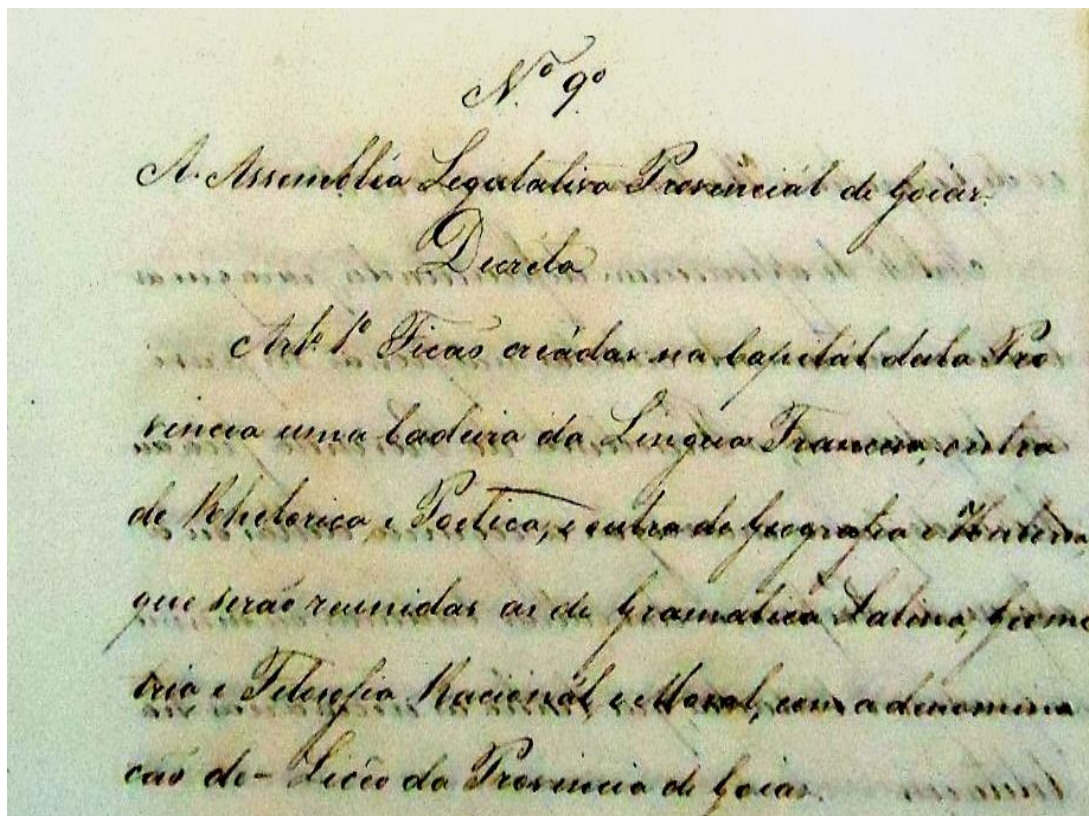 N.º 9º
A Assembléa Legislativa Provincial de Goias.
Decréta
Art. 1º Ficaõ creádas na Capitál desta Pro
vincia uma Cadeira da Lingua Franceza, outra
de Rhetorica, e Poetica, e outra de Geografia e Historia,
que seraõ reunidas as de Gramatica Latina, Giome
tria e Filosofia Racionál e Moral, com a denomina
caõ de - Licêo da Provincia de Goias.